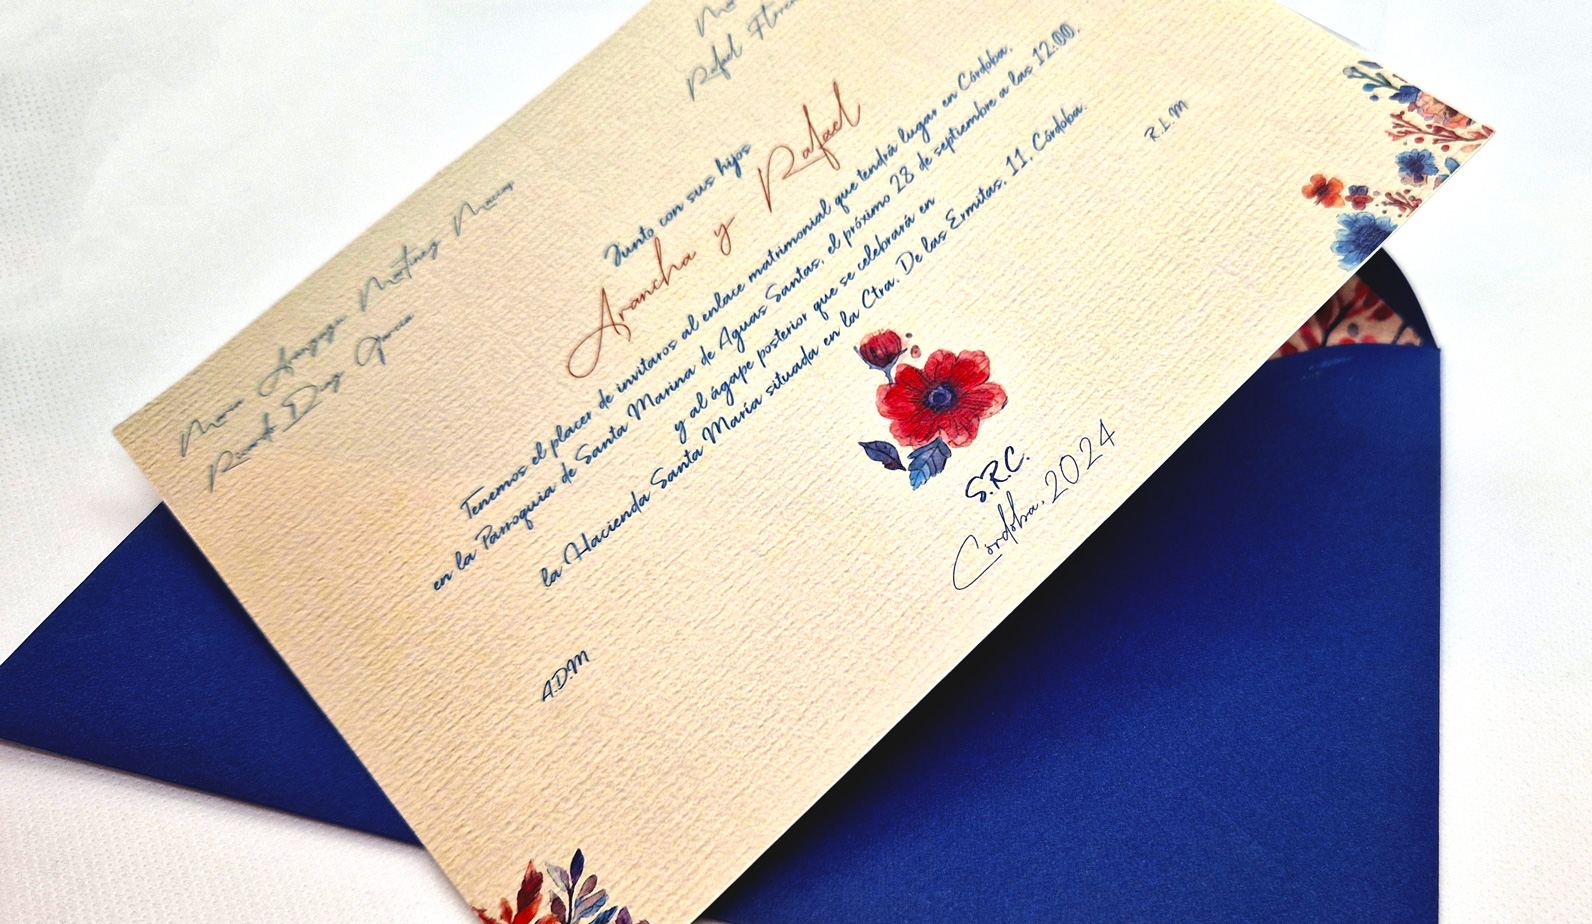 Ricardo Diaz Garcia
Rafael
Junto con sus hijos
Arancha y Rafael
Tenemos el placer de invitaros al enlace matrimonial que tendrá lugar en Córdoba,
en la Parroquia de Santa Marina de Aguas Santas, el próximo 28 de septiembre a las 12.00.
y al ágape posterior que se celebrará en
la Hacienda Santa María situada en la Ctra. De las Ermitas, 11, Córdoba.
A.D.M
R.L.M
S.R.C.
Cordoba, 2024